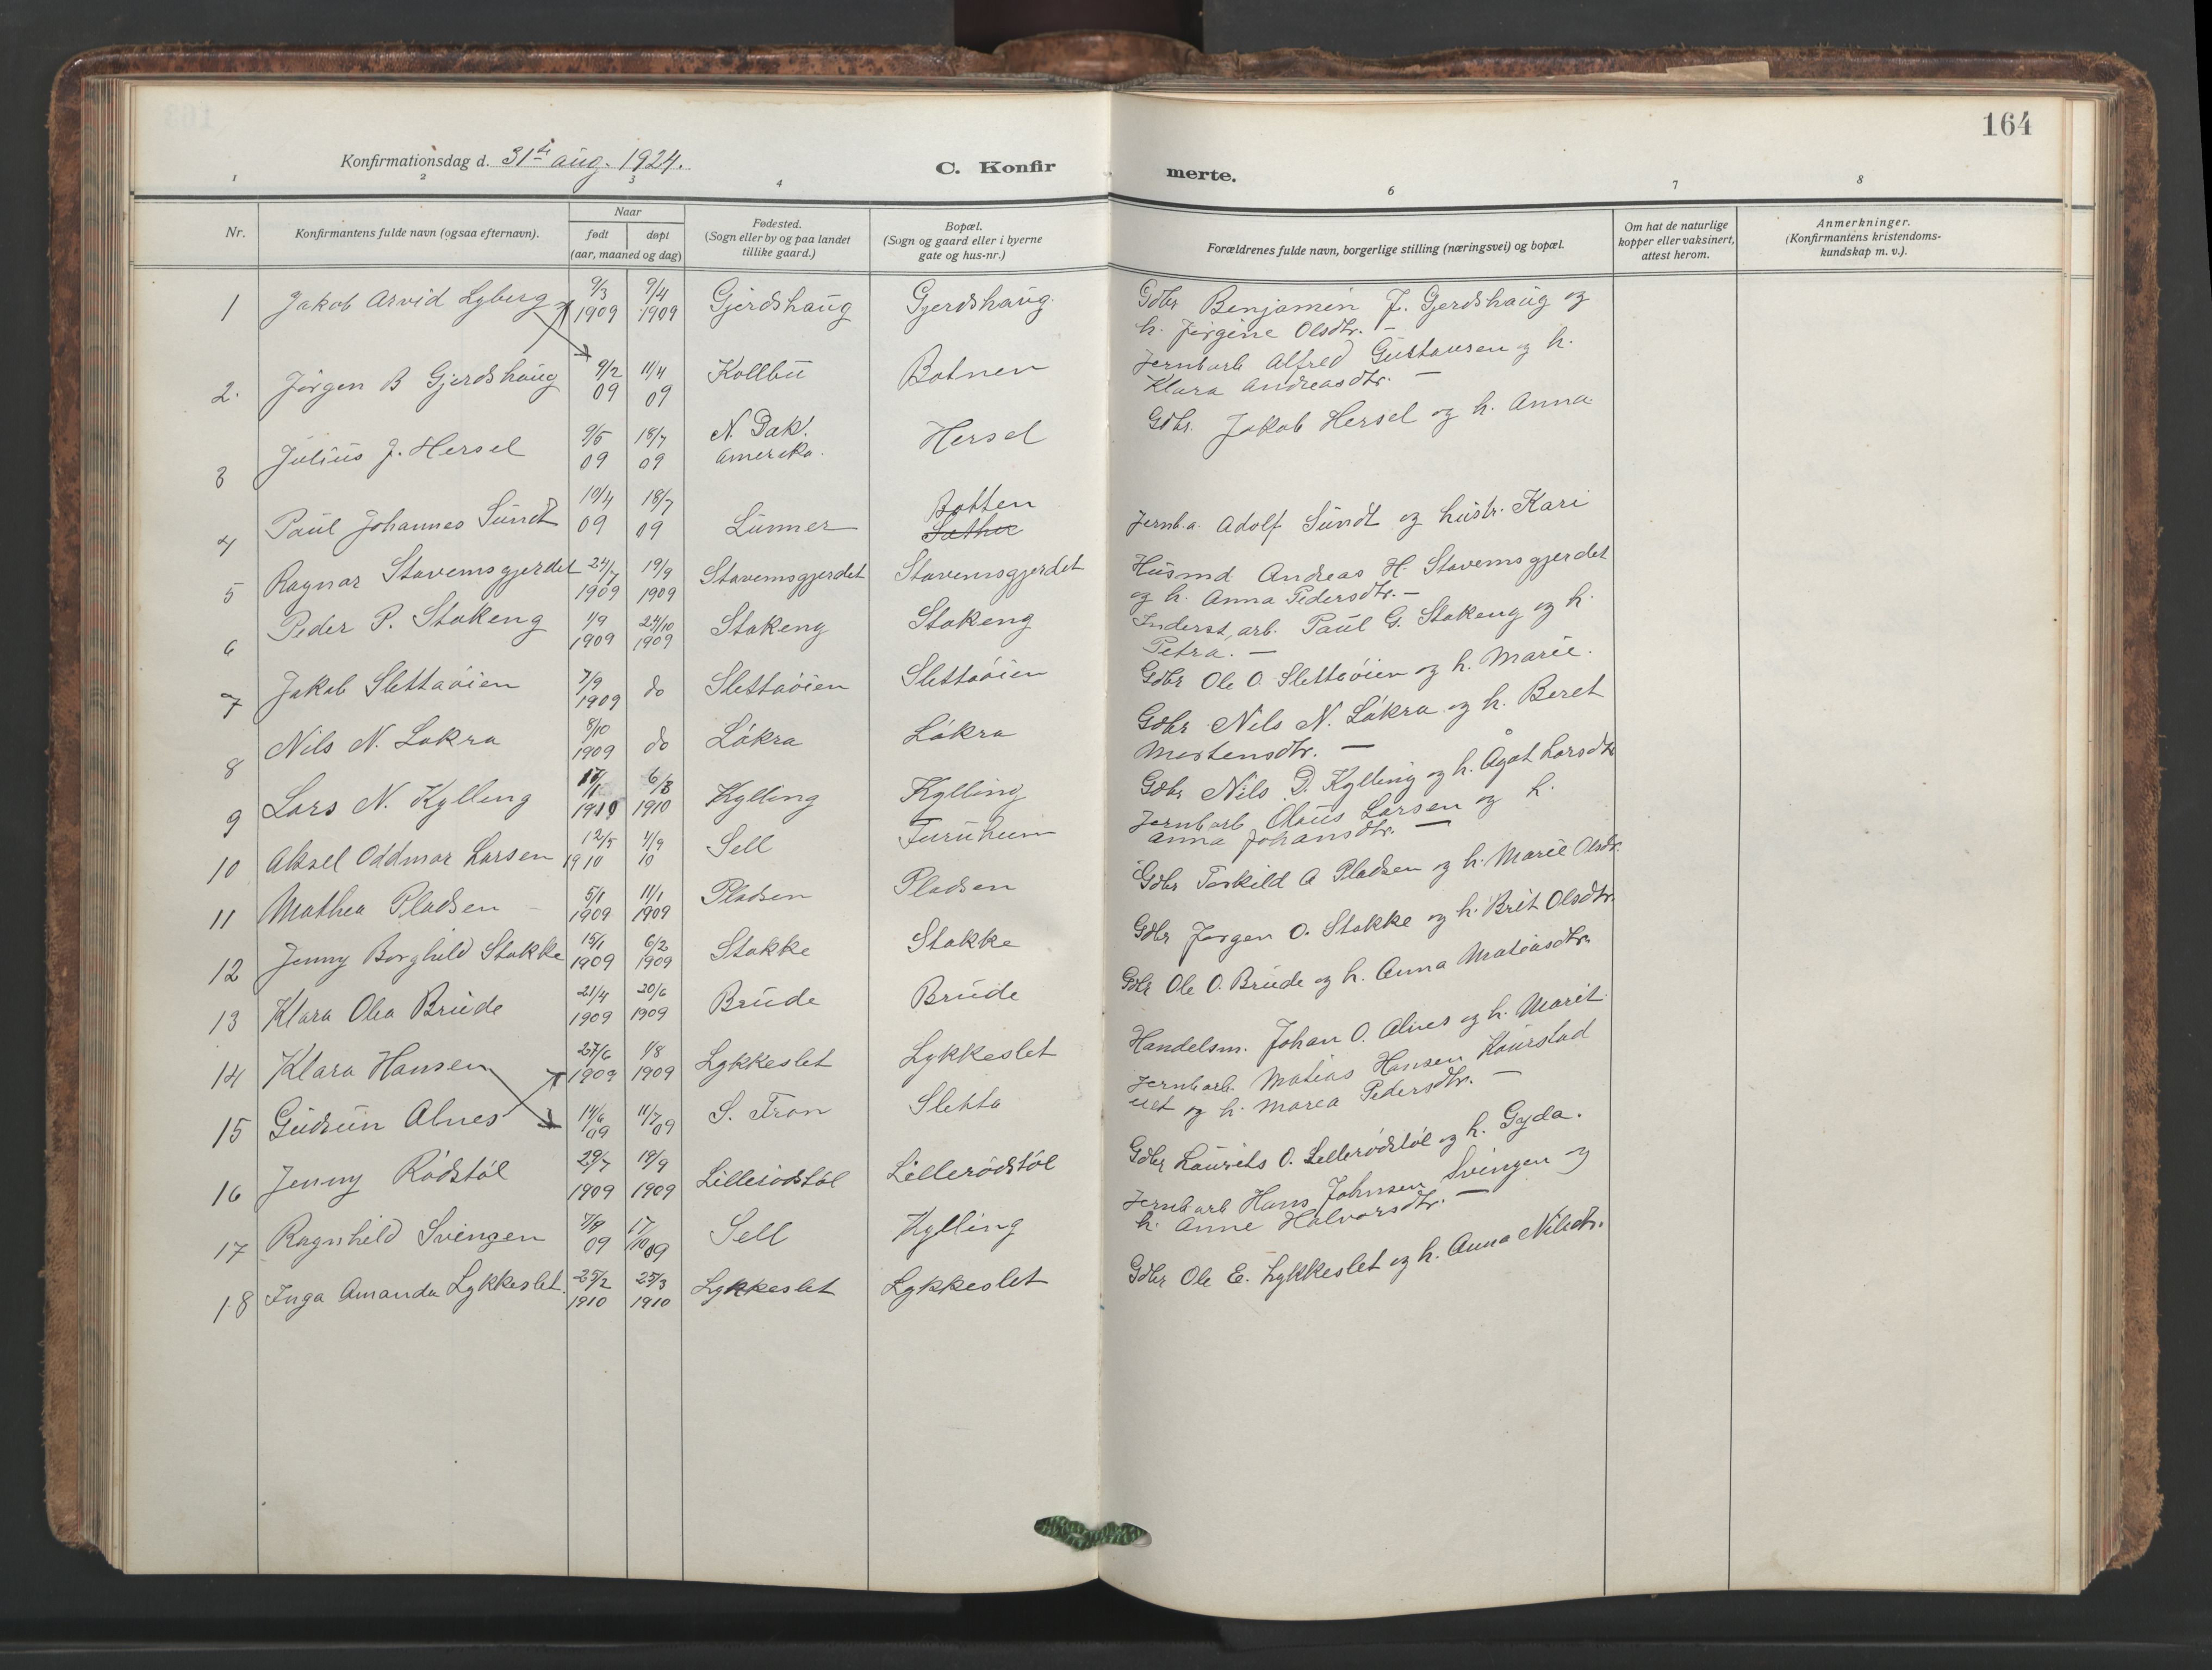 164
Konfirmationsdag d. 31te aug. 1924.
C. Konfirmerte.
1 2 3 4 6 7 8
Nr.
Konfirmantens fulde navn (ogsaa efternavn).
Naar
født døpt
(aar, maaned og dag)
Fødested.
(Sogn eller by og paa landet
tillike gaard.)
Bopæl.
(Sogn og gaard eller i byerne
gate og hus-nr.)
Forældrenes fulde navn, borgerlige stilling (næringsvei) og bopæl.
Om hat de naturlige
kopper eller vaksinert,
attest herom.
Anmerkninger.
(Konfirmantens kristendoms-
kundskap m. v.).
1 Jakob Arvid Lyberg 9/3 1909 9/4 1909 Gjerdshaug Gjerdshaug Gdbr Benjamin J. Gjerdshaug og
h. Jørgine Olsdtr. –
2. Jørgen B Gjerdshaug 9/2 09 11/4 09 Kollbu Botnen Jernbarb Alfred Gustavsen og h.
Klara Andreasdtr. –
3 Julius J. Hersel 9/5 09 18/7 09 N. Dak. Amerika. Hersel Gdbr. Jakob Hersel og h. Anna
4 Paul Johannes Sundt 10/4 09 18/7 09 Lunner Botten Jernb.a. Adolf Sundt og hustr. Kari
5 Ragnar Stavemsgjerdet 24/7 1909 19/9 1909 Stavemsgjerdet Stavemsgjerdet Husmd. Andreas H. Stavemsgjerdet
og h. Anna Pedersdtr. –
6 Peder P. Stokeng 1/9 1909 24/10 1909 Stokeng Stokeng Inderst, arb. Paul G. Stokeng og h.
Petra. –
7 Jakob Slettaøien 7/9 1909 do Slettaøien Slettaøien Gdbr Ole O. Slettaøien og h. Marie.
8 Nils N. Løkra 8/10 1909 do Løkra Løkra Gdbr Nils N. Løkra og h. Beret
Mortensdtr. –
9 Lars N. Kylling 17/1 1910 6/3 1910 Kylling Kylling Gdbr Nils D. Kylling og h. Ågot Larsdtr
10 Aksel Oddmar Larsen 12/5 1910 4/9 10 Sell Furuheim Jernbarb Olaus Larsen og h.
Anna Johansdtr. –
11 Mathea Pladsen 5/1 1909 11/1 1909 Pladsen Pladsen Gdbr Torkild A Pladsen og h. Marie Olsdtr.
12 Jenny Borghild Stokke 15/1 1909 6/2 1909 Stokke Stokke Gdbr Jørgen O. Stokke og h. Brit Olsdtr.
13 Klara Olea Brude 21/4 1909 20/6 1909 Brude Brude Gdbr Ole O. Brude og h. Anna Matiasdtr.
14 Klara Hansen 27/6 1909 1/8 1909 Lykkeslet Lykkeslet Handelsm. Johan O. Alnes og h. Marit
15 Gudrun Alnes 14/6 09 11/7 09 S. Fron Sletta Jernbarb. Matias Hansen Kaurstad
og h. Marea Pedersdtr. –
16 Jenny Rødstøl 29/7 1909 19/9 1909 Lillerødstøl Lillerødstøl Gdbr Laurits O. Lillerødstøl og h. Gyda.
17 Ragnhild Svingen 7/9 09 17/10 09 Sell Kylling Jernbarb Hans Johnsen Svingen og
h. Anne Halvorsdtr. –
18 Inga Amanda Lykkeslet 25/2 1910 25/3 1910 Lykkeslet Lykkeslet Gdbr Ole E. Lykkeslet og h. Anna Nilsdtr.